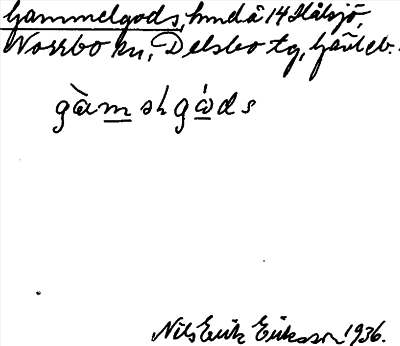 Gammelgods, hmdå 14 Hålsjö,
Norrbo sn, Delsbo tg, Gävleb.
gàmshgóds
Nils Erik Eriksson 1936.